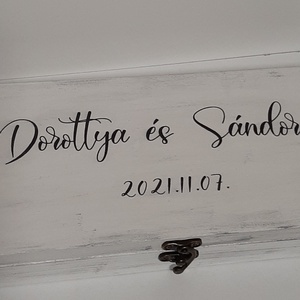 Dorottya és Sándor
2021.11.07.